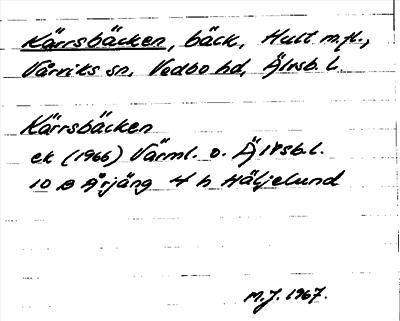 Kärrsbäcken, bäck, Hult m.fl.,
Vårviks sn, Vedbo hd, Älvsb. l.
Kärrsbäcken
ek (1966) Värml. o. Älvsb.l.
10 B Årjäng 4 h Häljelund
M.J. 1967.